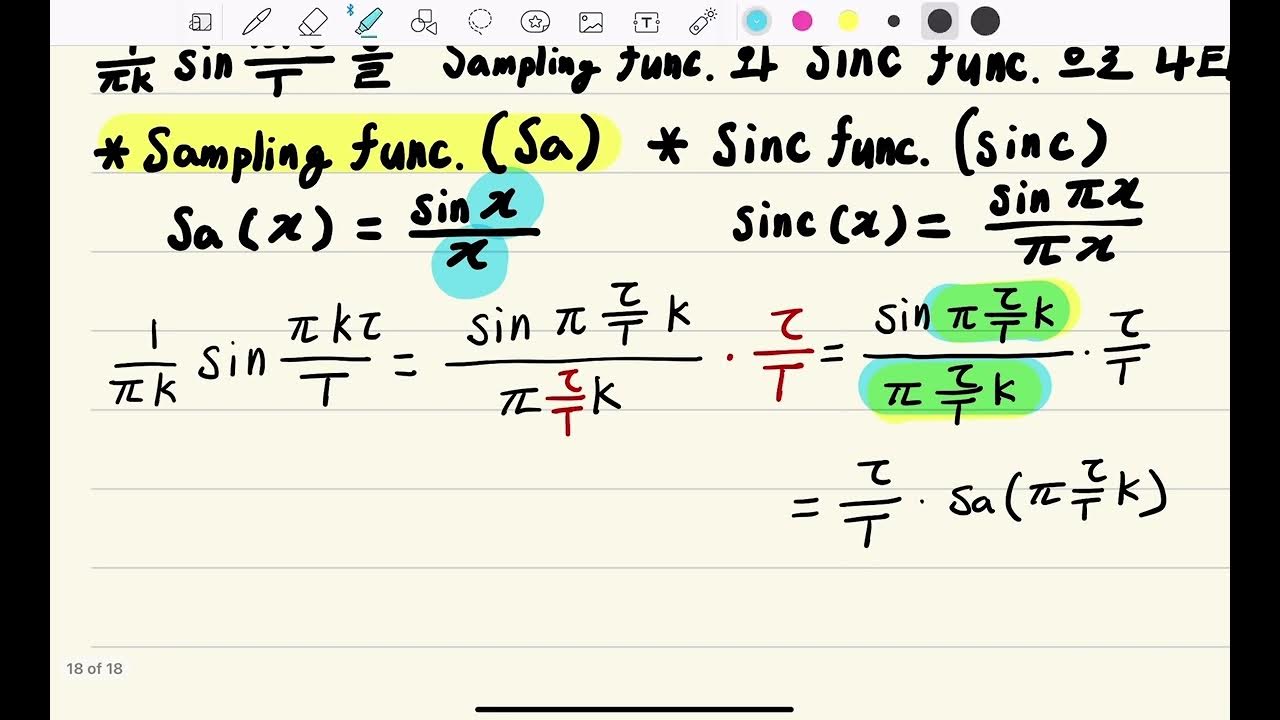 1/πk sin /T 을 Sampling func. 와 Sinc func. 으로
* Sampling func. (Sa) * Sinc func. (sinc)
Sa(x) = sin x / x sinc(x) = sin πx / πx
1/πk sin πkτ/T = sin π τ/T k / π τ/T k · τ/T = sin π τ/T k / π τ/T k · τ/T
= τ/T · Sa(π τ/T k)
18 of 18